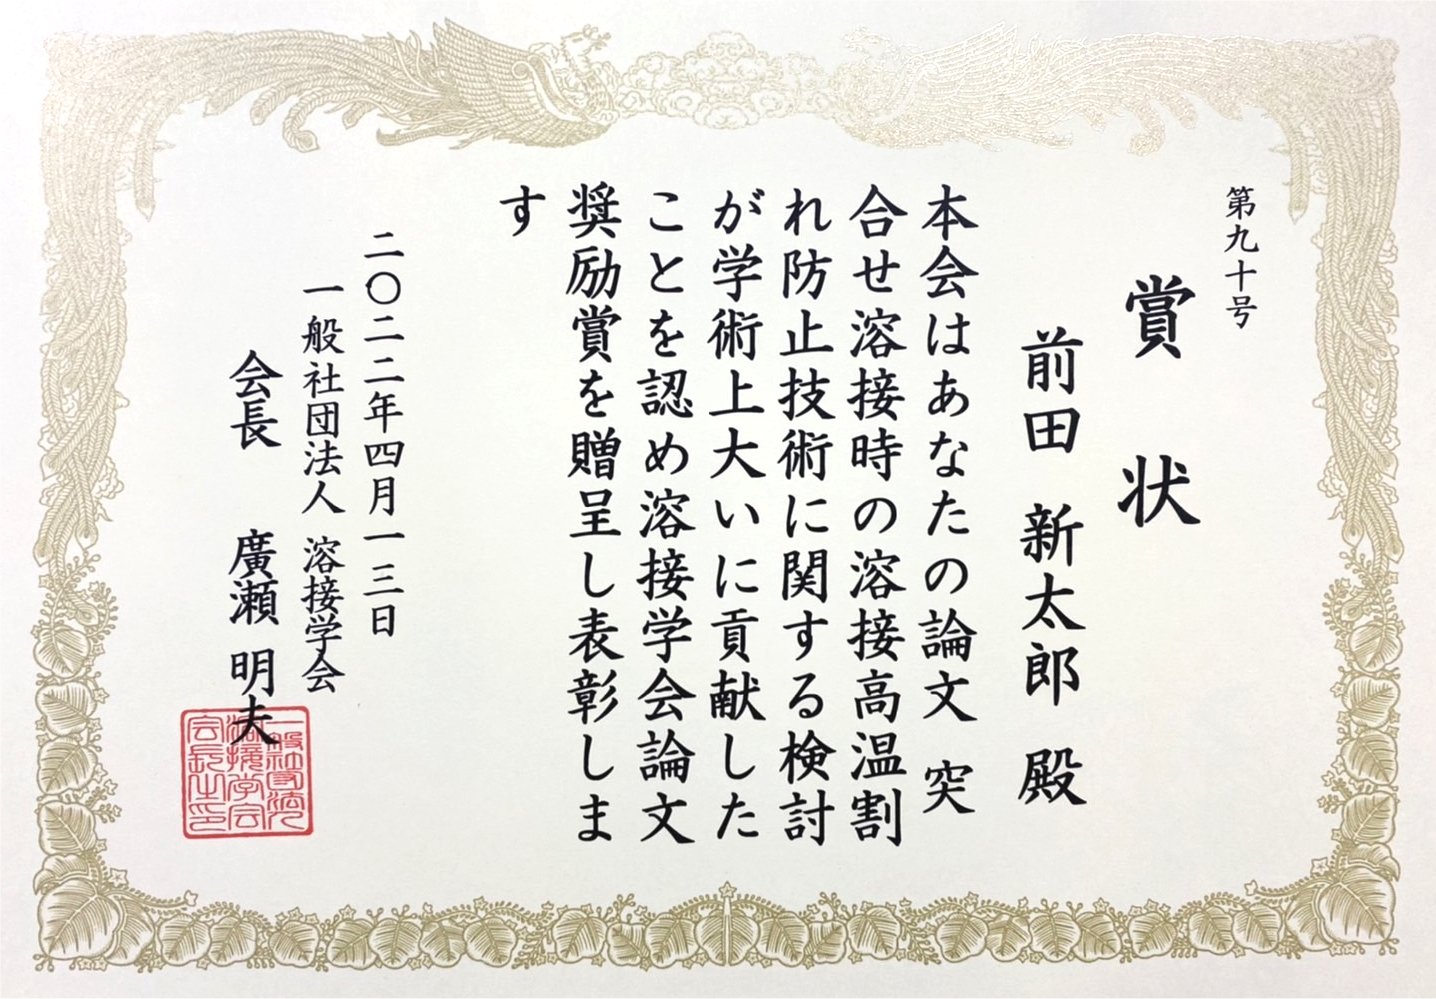 第九十号
賞状
前田 新太郎 殿
本会はあなたの論文 突
合せ溶接時の溶接高温割
れ防止技術に関する検討
が学術上大いに貢献した
ことを認め溶接学会論文
奨励賞を贈呈し表彰しま
す
二〇二二年四月一三日
一般社団法人 溶接学会
会長 廣瀬 明夫
一般社団法人
溶接学会
会長之印